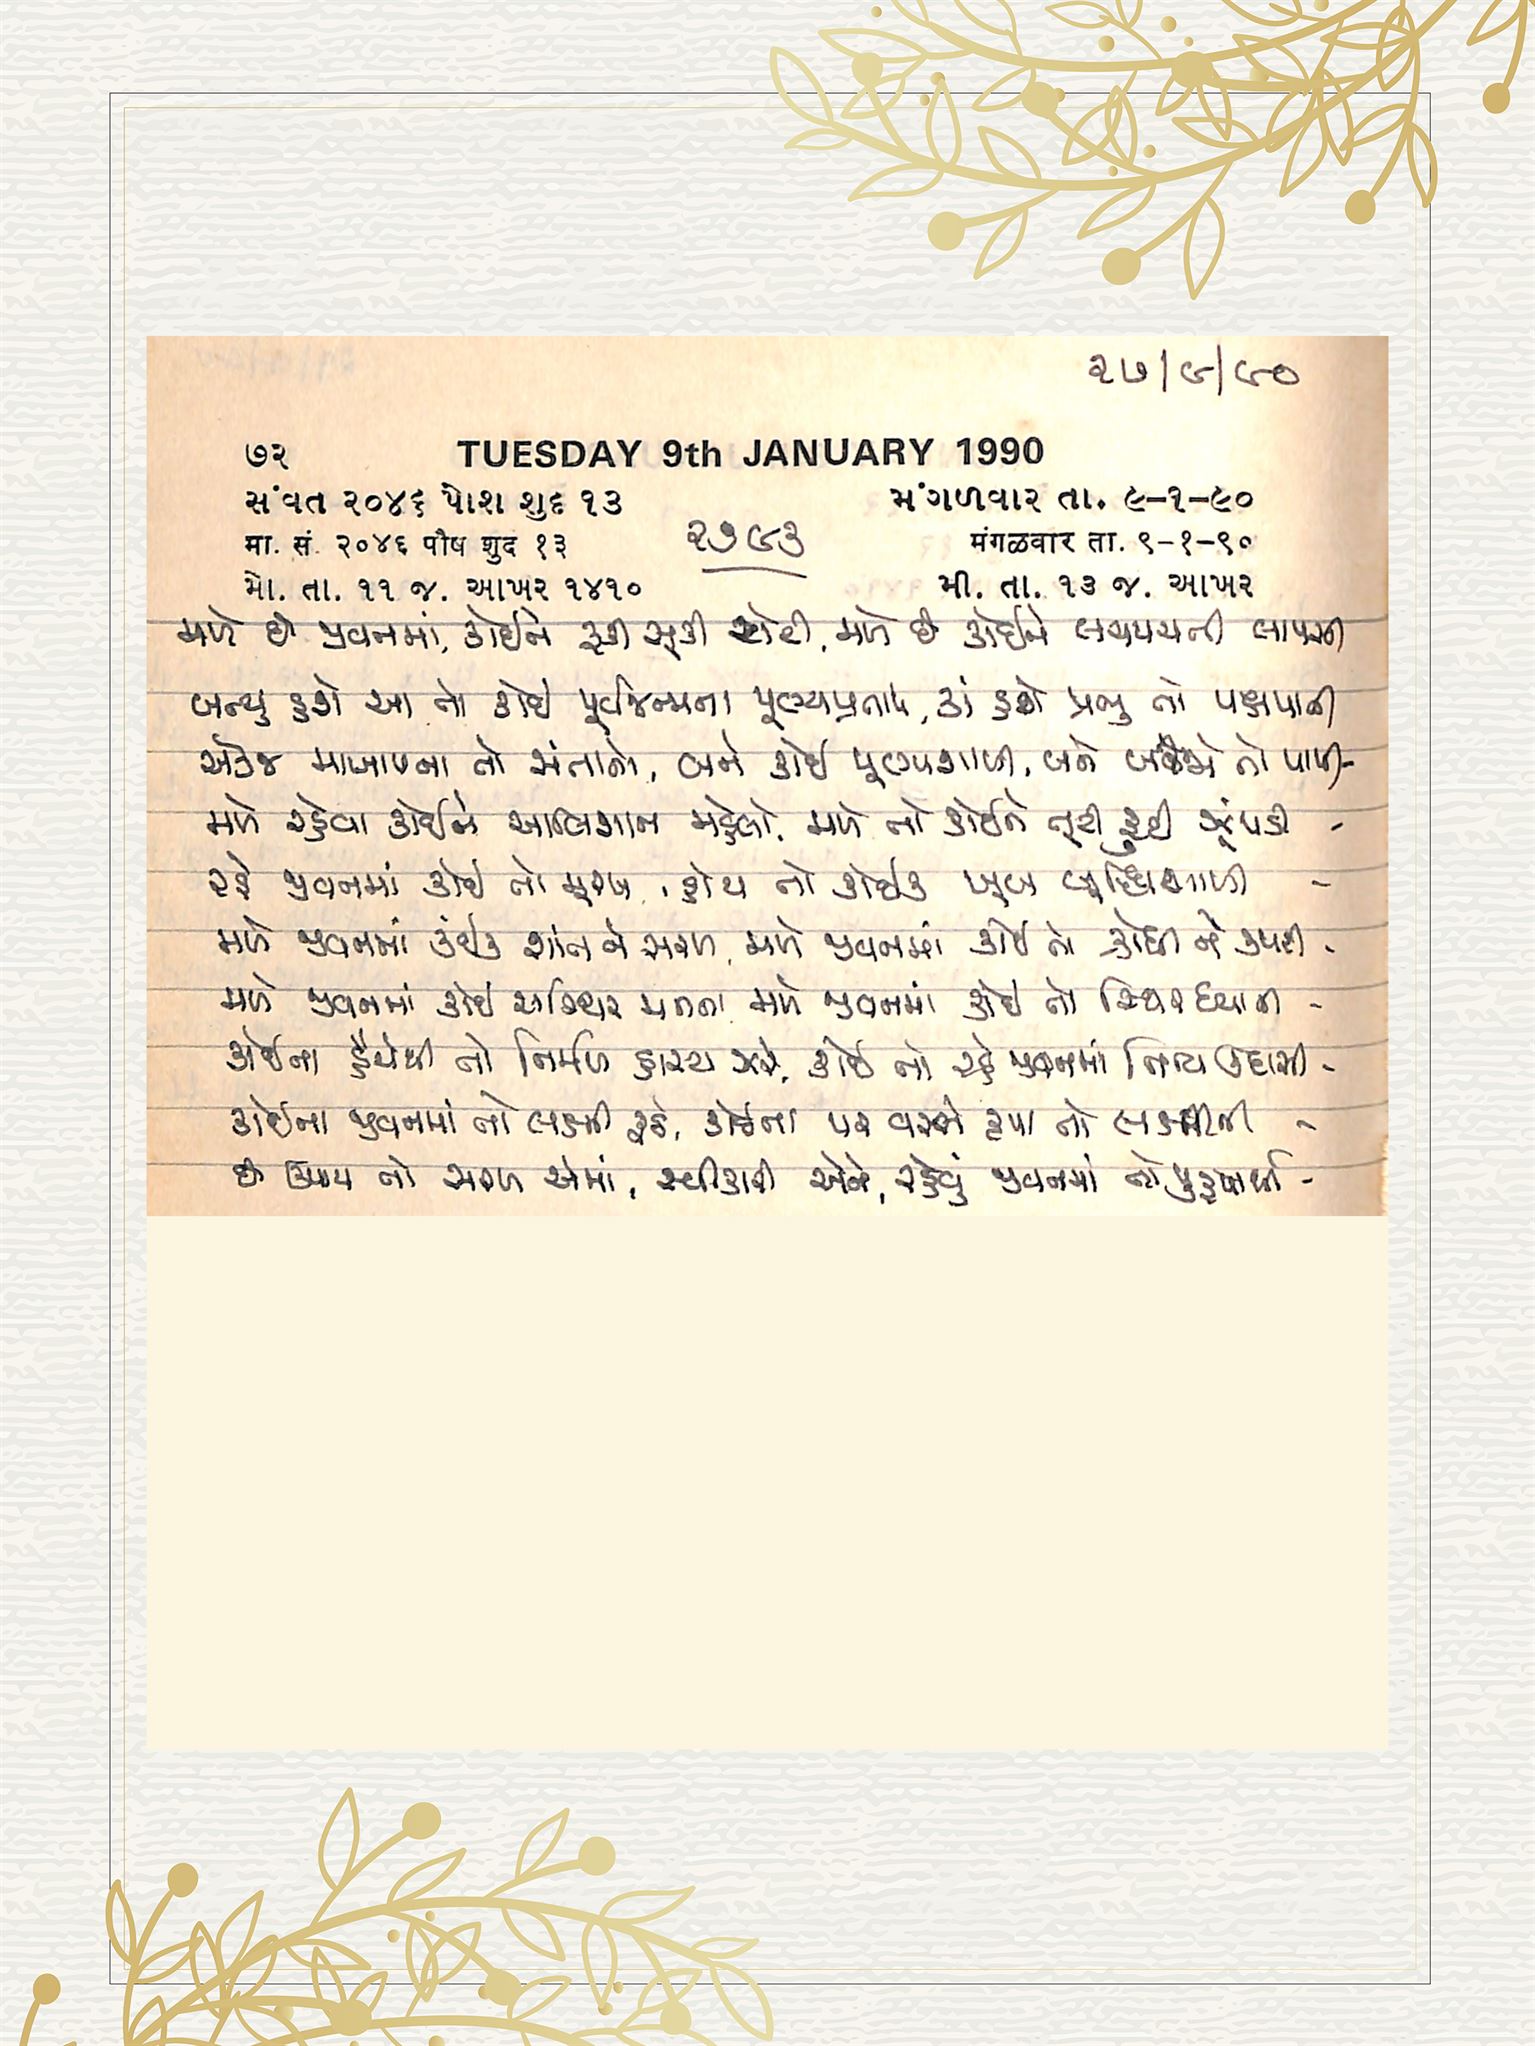 ૨૭/૯/૯૦
૭૨ TUESDAY 9th JANUARY 1990
સંવત ૨૦૪૬ પોશ શુદ ૧૩ મંગળવાર તા. ૯-૧-૯૦
मा. सं. २०४६ पौष शुद १३ मंगळवार ता. ९-१-९०
૨૭૯૩
મો. તા. ૧૧ જ. આખર ૧૪૧૦ મી. તા. ૧૩ જ. આખર
મળે છે જીવનમાં, કોઈને રૂકી સૂકી રોટી, મળે છે કોઈને લચપચતી લાપસી
બન્યુ હશે આ તો કોઈ પૂર્વજન્મના પૂણ્યપ્રતાપ, કાં હશે પ્રભુ તો પક્ષપાતી
એકેજ માબાપના તો સંતાનો, બને કોઈ પૂણ્યશાળી, બને તો પાપી-
મળે રહેવા કોઈને આલિશાન મહેલો, મળે તો કોઈને તૂટી ફૂટી ઝૂંપડી -
રહે જીવનમાં કોઈ તો મૂરખ, હોય તો કોઈક ખૂબ બુદ્ધિશાળી -
મળે જીવનમાં કંઈક શાંત ને સરળ, મળે જીવનમાં કોઈ તો ક્રોધી ને કપટી -
મળે જીવનમાં કોઈ અસ્થિર મનના મળે જીવનમાં કોઈ તો સ્થિર ધ્યાની -
કોઈના હૈયેથી તો નિર્મળ હાસ્ય ઝરે, કોઈ તો રહે જીવનમાં નિત્ય ઉદાસી -
કોઈના જીવનમાં તો લક્ષ્મી રૂઠે, કોઈના પર વરસે કૃપા તો લક્ષ્મીની -
છે ઉપાય તો સરળ એમાં, સ્વીકારી એને, રહેવું જીવનમાં તો પુરૂષાર્થી -